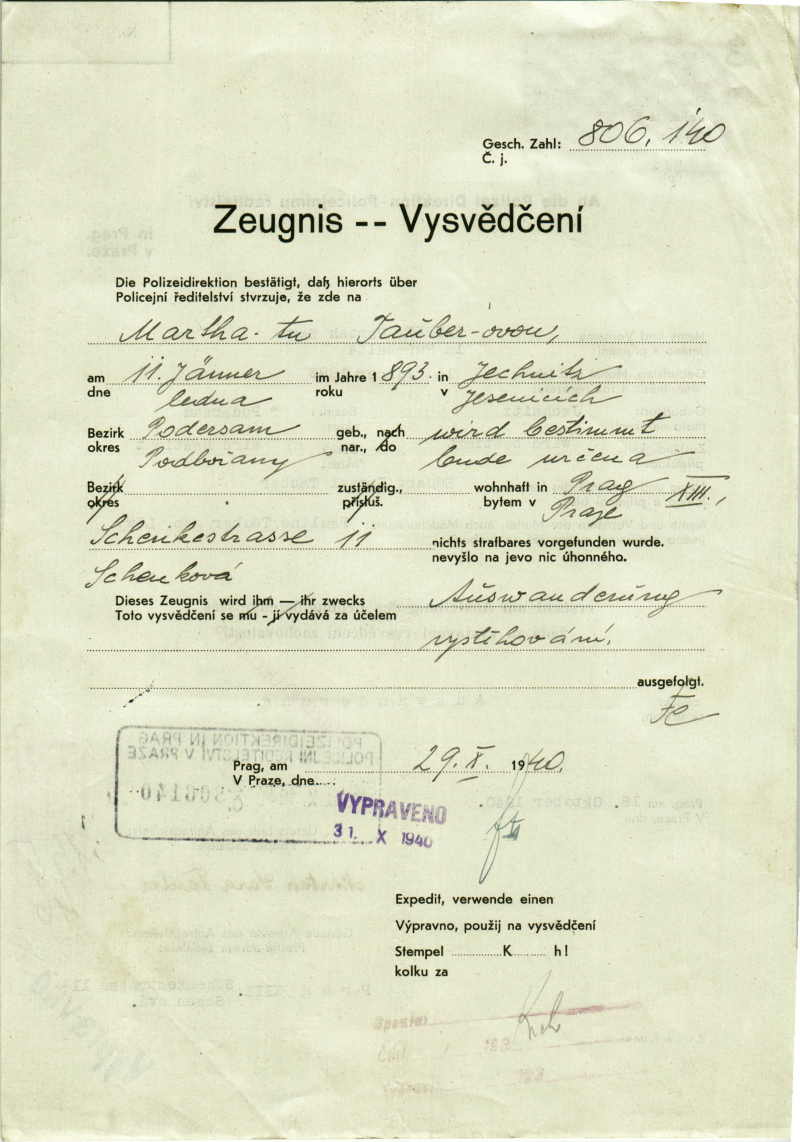 Gesch. Zahl: 806. 140
Č. j.
Zeugnis -- Vysvědčení
Die Polizeidirektion bestätigt, daß hierorts über
Policejní ředitelství stvrzuje, že zde na
Martha-tu Tauber-ovou,
am 11. Jänner im Jahre 1893 in Jechnitz
dne ledna roku v Jesenicích
Bezirk Podersam geb., nach wird bestimmt
okres Podbořany nar., do bude určena
Bezirk zuständig., wohnhaft in Prag XIII.,
okres přísluš. bytem v Praze
Schenkestrasse 11 nichts strafbares vorgefunden wurde.
nevyšlo na jevo nic úhonného.
Schenková
Dieses Zeugnis wird ihm — ihr zwecks Auswanderung
Toto vysvědčení se mu - jí vydává za účelem
vystěhování.
ausgefolgt.
POLIZEIDIREKTION IN PRAG
POLICEJNÍ ŘEDITELSTVÍ V PRAZE
Prag, am 29. X. 1940.
V Praze, dne
VYPRAVENO
31. X 1940
Expedit, verwende einen
Výpravno, použij na vysvědčení
Stempel K h!
kolku za